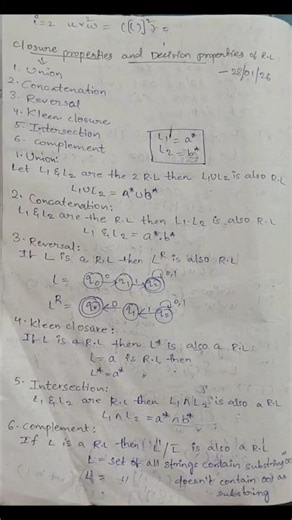 i=2 uv²w = (()²) =
Closure properties and Decision properties of R.L
- 28/01/26
1. Union
2. Concatenation
3. Reversal
4. Kleen closure
5. Intersection
6. complement
L1 = a*
L2 = b*
1. Union:
Let L1 & L2 are the 2 R.L then L1UL2 is also R.L
L1UL2 = a* U b*
2. Concatenation:
L1 & L2 are the R.L then L1.L2 is also R.L
L1 & L2 = a*.b*
3. Reversal:
If L is a R.L then L^R is also R.L
L = q0 0 q1 1 q2 0,1
L^R = q0 0 q1 1 q2 0,1
4. Kleen closure:
If L is a R.L then L* is also a R.L
L = a is R.L then
L* = a*
5. Intersection:
L1 & L2 are R.L then L1∩L2 is also a R.L
L1∩L2 = a* ∩ b*
6. Complement:
If L is a R.L then L'/L̅ is also a R.L
L = set of all strings contain substring 00
L̅ = " doesn't contain 00 as
substring